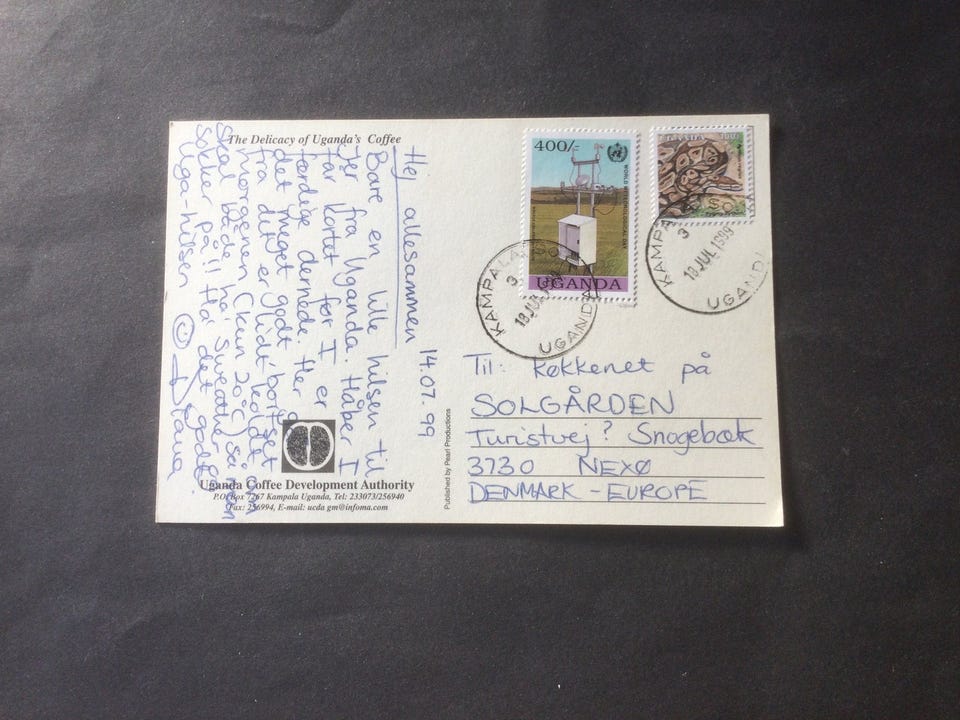 The Delicacy of Uganda's Coffee
Hej allesammen 14.07.99
Bare en lille hilsen til
jer fra Uganda. Håber I
får kortet før I er
færdige dernede. Her er
det meget godt bortset
fra det er lidt koldt om
morgenen (kun 20°C) så man
skal både ha' sweather og
sokker på!! Ha' det godt.
Uga-hilsen ☺ Diana
Uganda Coffee Development Authority
P.O. Box 7267 Kampala Uganda, Tel: 233073/256940
Fax: 256994, E-mail: ucda gm@infoma.com
Published by Pearl Productions
400/-
WORLD METEOROLOGICAL DAY
UGANDA
UGANDA
KAMPALA
3
18 JUL 1999
UGANDA
KAMPALA
3
18 JUL 1999
UGANDA
Til: køkkenet på
SOLGÅRDEN
Turistvej? Snogebæk
3730 NEXØ
DENMARK - EUROPE